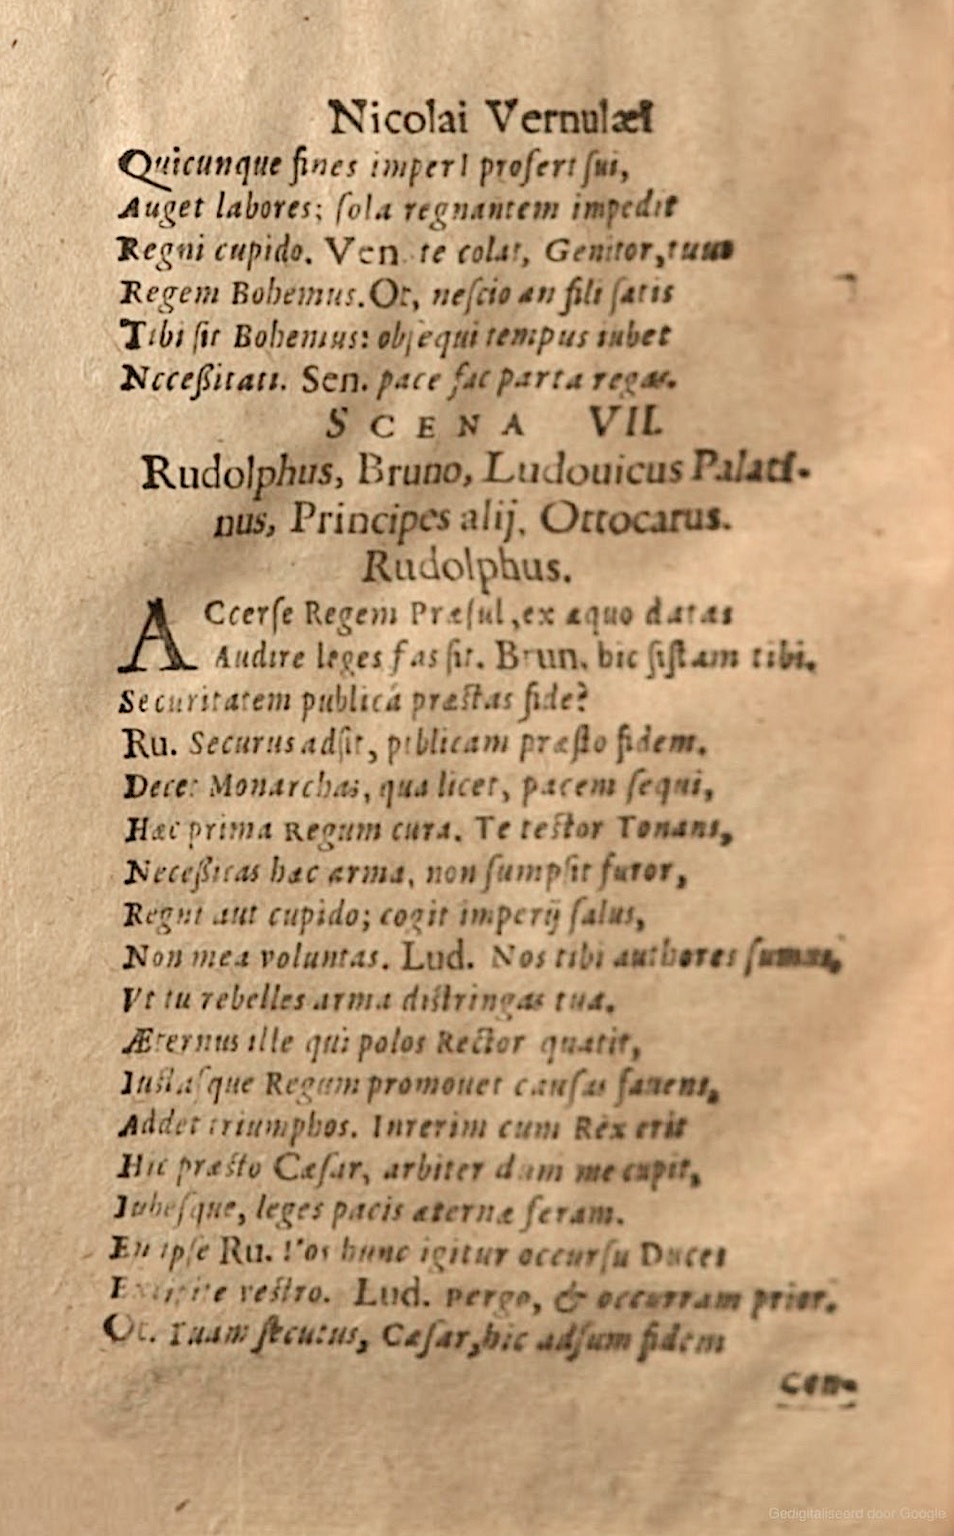 Nicolai Vernulæi
Quicunque fines imperI profert sui,
Auget labores; sola regnantem impedit
Regni cupido. Ven. te colat, Genitor, tuus
Regem Bohemus. Ot, nescio an fili satis
Tibi sit Bohemus: obsequi tempus iubet
Neceßitati. Sen. pace fac parta regas.
SCENA VII.
Rudolphus, Bruno, Ludouicus Palati-
nus, Principes alij, Ottocarus.
Rudolphus.
ACcerse Regem Præsul, ex æquo datas
Audire leges fas sit. Brun. hic sistam tibi.
Securitatem publicá præstas fide?
Ru. Securus adsit, publicam præsto fidem.
Decet Monarchas, qua licet, pacem sequi,
Hæc prima Regum cura. Te testor Tonans,
Neceßitas hæc arma, non sumpsit furor,
Regni aut cupido; cogit imperij salus,
Non mea voluntas. Lud. Nos tibi authores sumus,
Vt tu rebelles arma distringas tua.
Æternus ille qui polos Rector quatit,
Iustasque Regum promouet causas fauens,
Addet triumphos. Interim cum Rex erit
Hic præsto Cæsar, arbiter dum me cupit,
Iubesque, leges pacis æternæ feram.
En ipse Ru. Vos hunc igitur occursu Duces
vestro. Lud. pergo, & occurram prior.
Ot. Tuam secutus, Cæsar, hic adsum fidem
con-
Gedigitaliseerd door Google